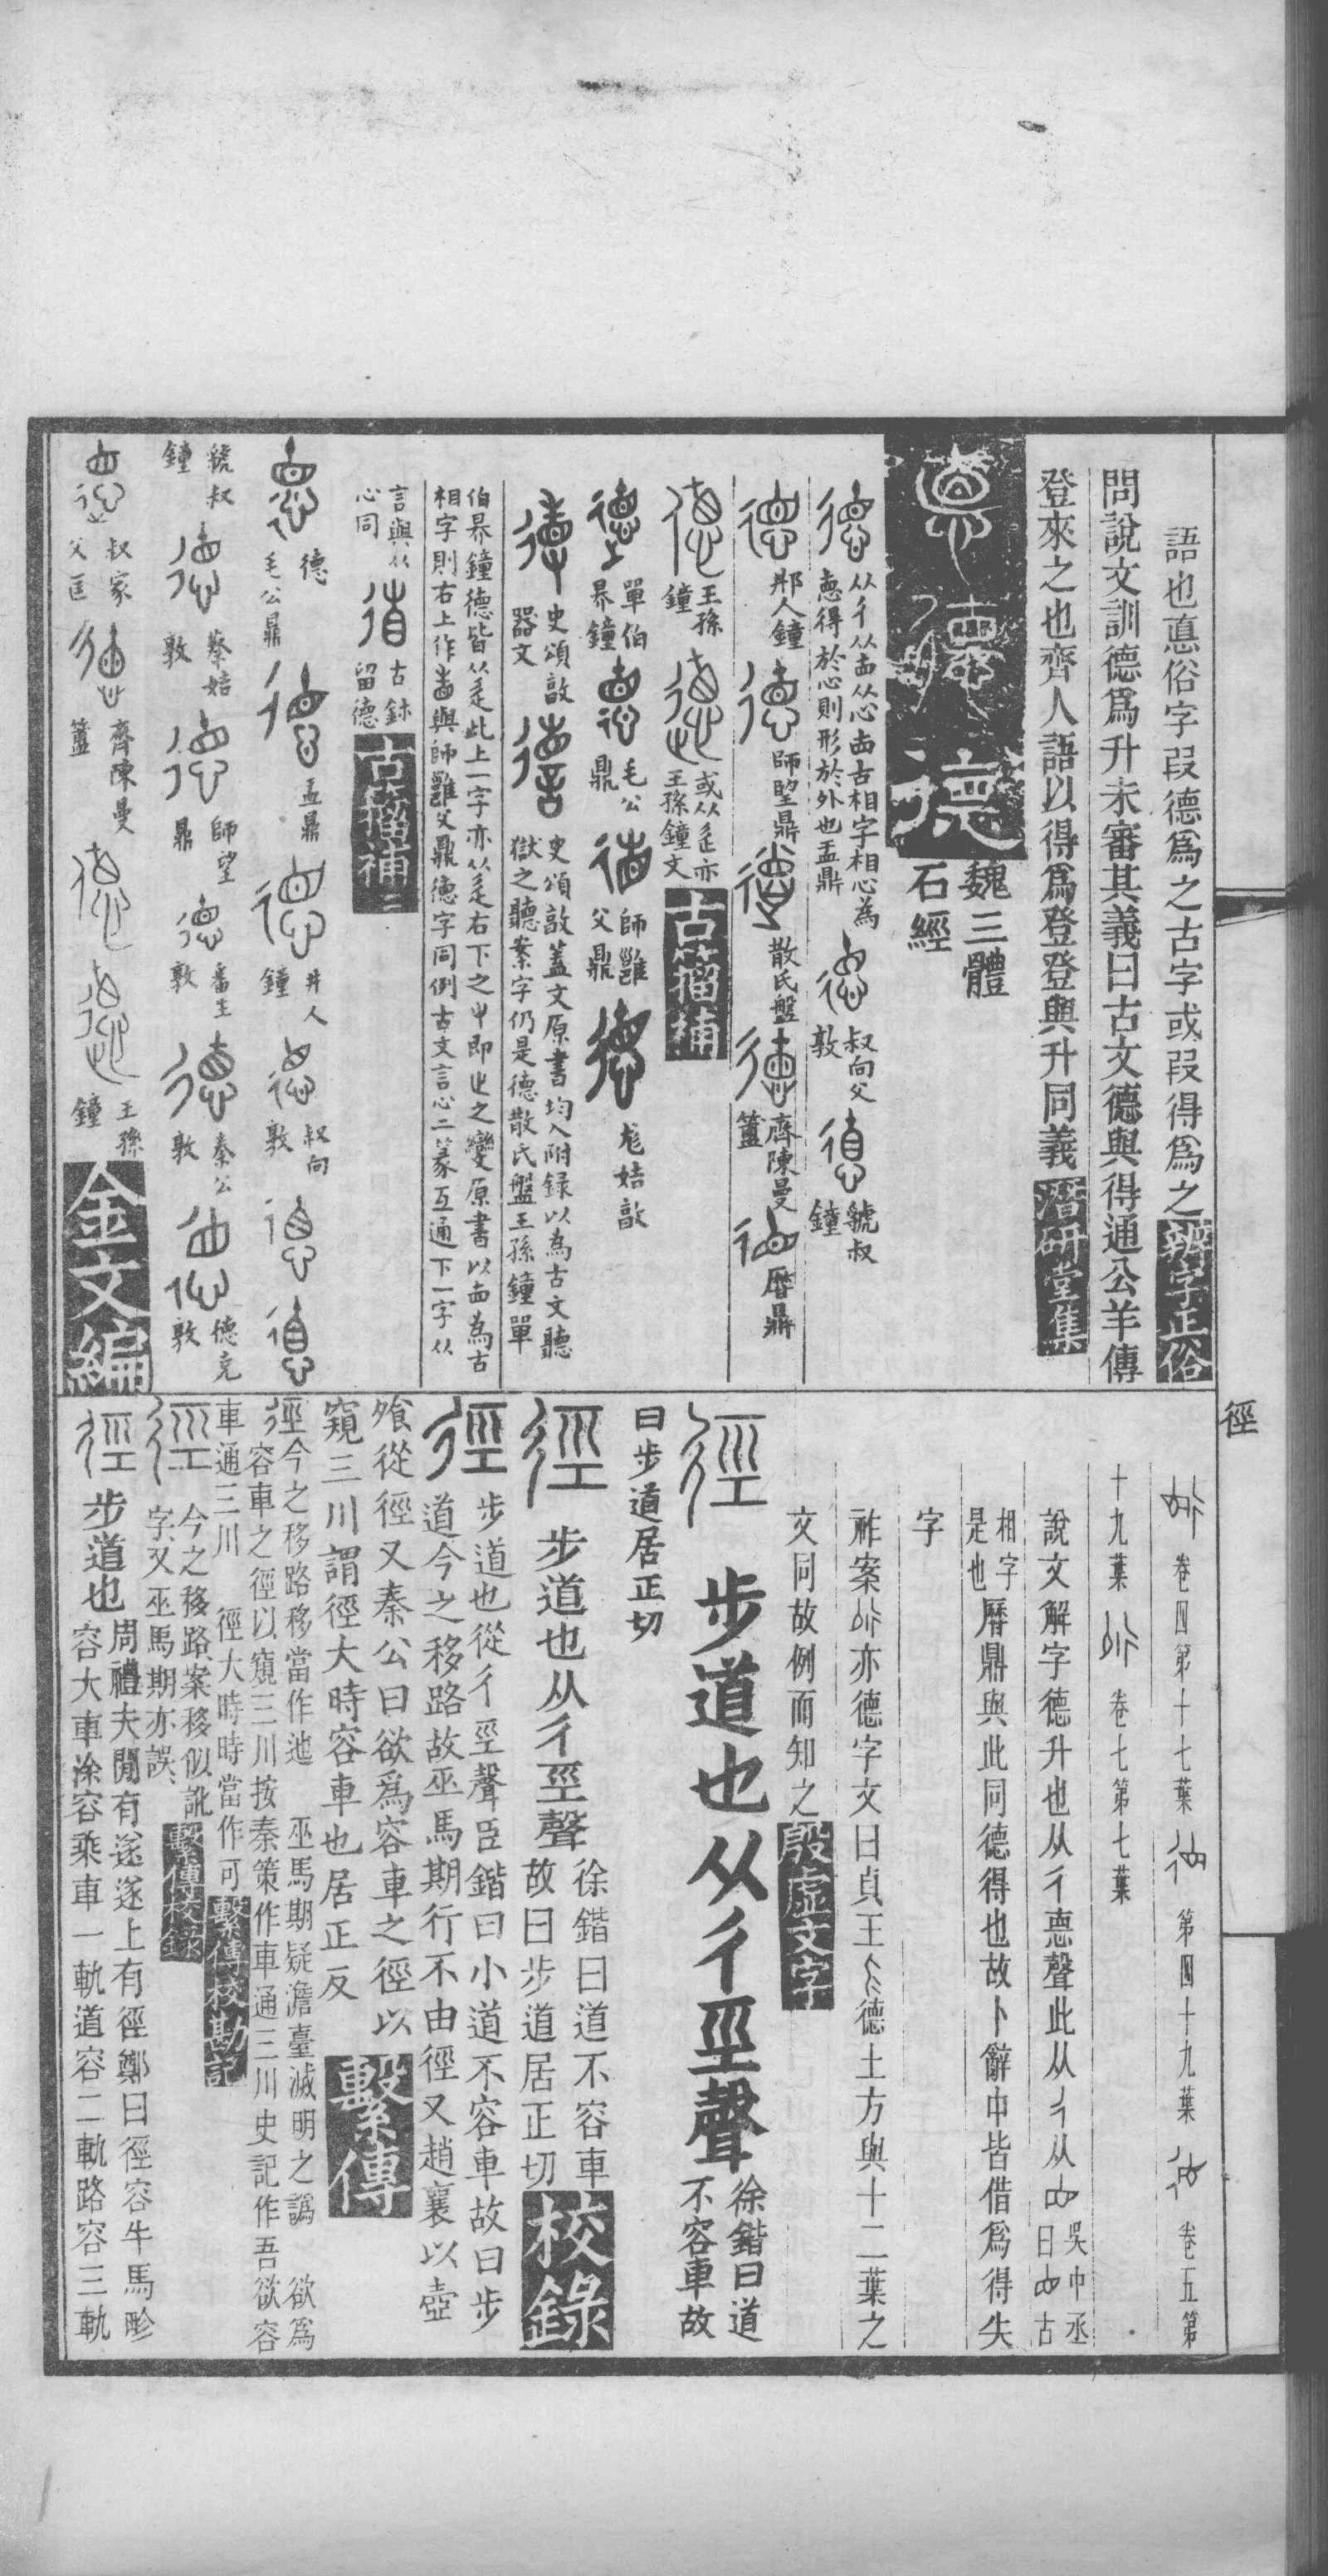 語也悳俗字叚德爲之古字或叚得爲之辨字正俗
問說文訓德爲升未審其義曰古文德與得通公羊傳
登來之也齊人語以得爲登登與升同義潛研堂集
魏三體
石經
从彳从𥄂从心𥄂古相字相心為
悳得於心則形於外也盂鼎
叔向父
敦
虢叔
鐘
邢人鐘
師望鼎
散氏盤
齊陳曼
簠
曆鼎
王孫
鐘
或从辵亦
王孫鐘文
古籀補
單伯
昦鐘
毛公
鼎
師雝
父鼎
史頌敦
器文
史頌敦蓋文原書均入附録以為古文聽
獄之聽案字仍是德散氏盤王孫鐘單
伯昦鐘德皆从辵此上一字亦从辵右下之㞢即止之變原書以𥄂為古
相字則右上作𥄂與師雝父鼎德字同例古文言心二篆互通下一字从
言與从
心同
古鉥
留德
古籀補二
德
毛公鼎
盂鼎
井人
鐘
叔向
敦
虢叔
鐘
蔡姞
敦
師望
鼎
番生
敦
秦公
敦
德克
敦
叔家
父匡
齊陳曼
簠
王孫
鐘
金文編
徑
卷四第十七葉
第四十九葉
卷五第
十九葉
卷七第七葉
說文解字德升也从彳悳聲此从彳从
吳中丞
曰 古
相字
是也
曆鼎與此同德得也故卜辭中皆借爲得失
字
祚案 亦德字文曰貞王 德土方與十二葉之
文同故例而知之殷虛文字
徑 步道也从彳巠聲
徐鍇曰道
不容車故
曰步道居正切
徑 步道也从彳巠聲
徐鍇曰道不容車
故曰步道居正切校錄
徑 步道也從彳巠聲臣鍇曰小道不容車故曰步
道今之移路故巫馬期行不由徑又趙襄以壺
飱從徑又秦公曰欲爲容車之徑以
窺三川謂徑大時容車也居正反 繫傳
徑今之移路移當作迆 巫馬期疑澹臺滅明之譌 欲爲
容車之徑以窺三川按秦策作車通三川史記作吾欲容
車通三川 徑大時時當作可繫傳校勘記
徑
今之移路案移似訛
字又巫馬期亦誤
繫傳校錄
徑 步道也
周禮夫閒有遂遂上有徑鄭曰徑容牛馬畛
容大車涂容乘車一軌道容二軌路容三軌